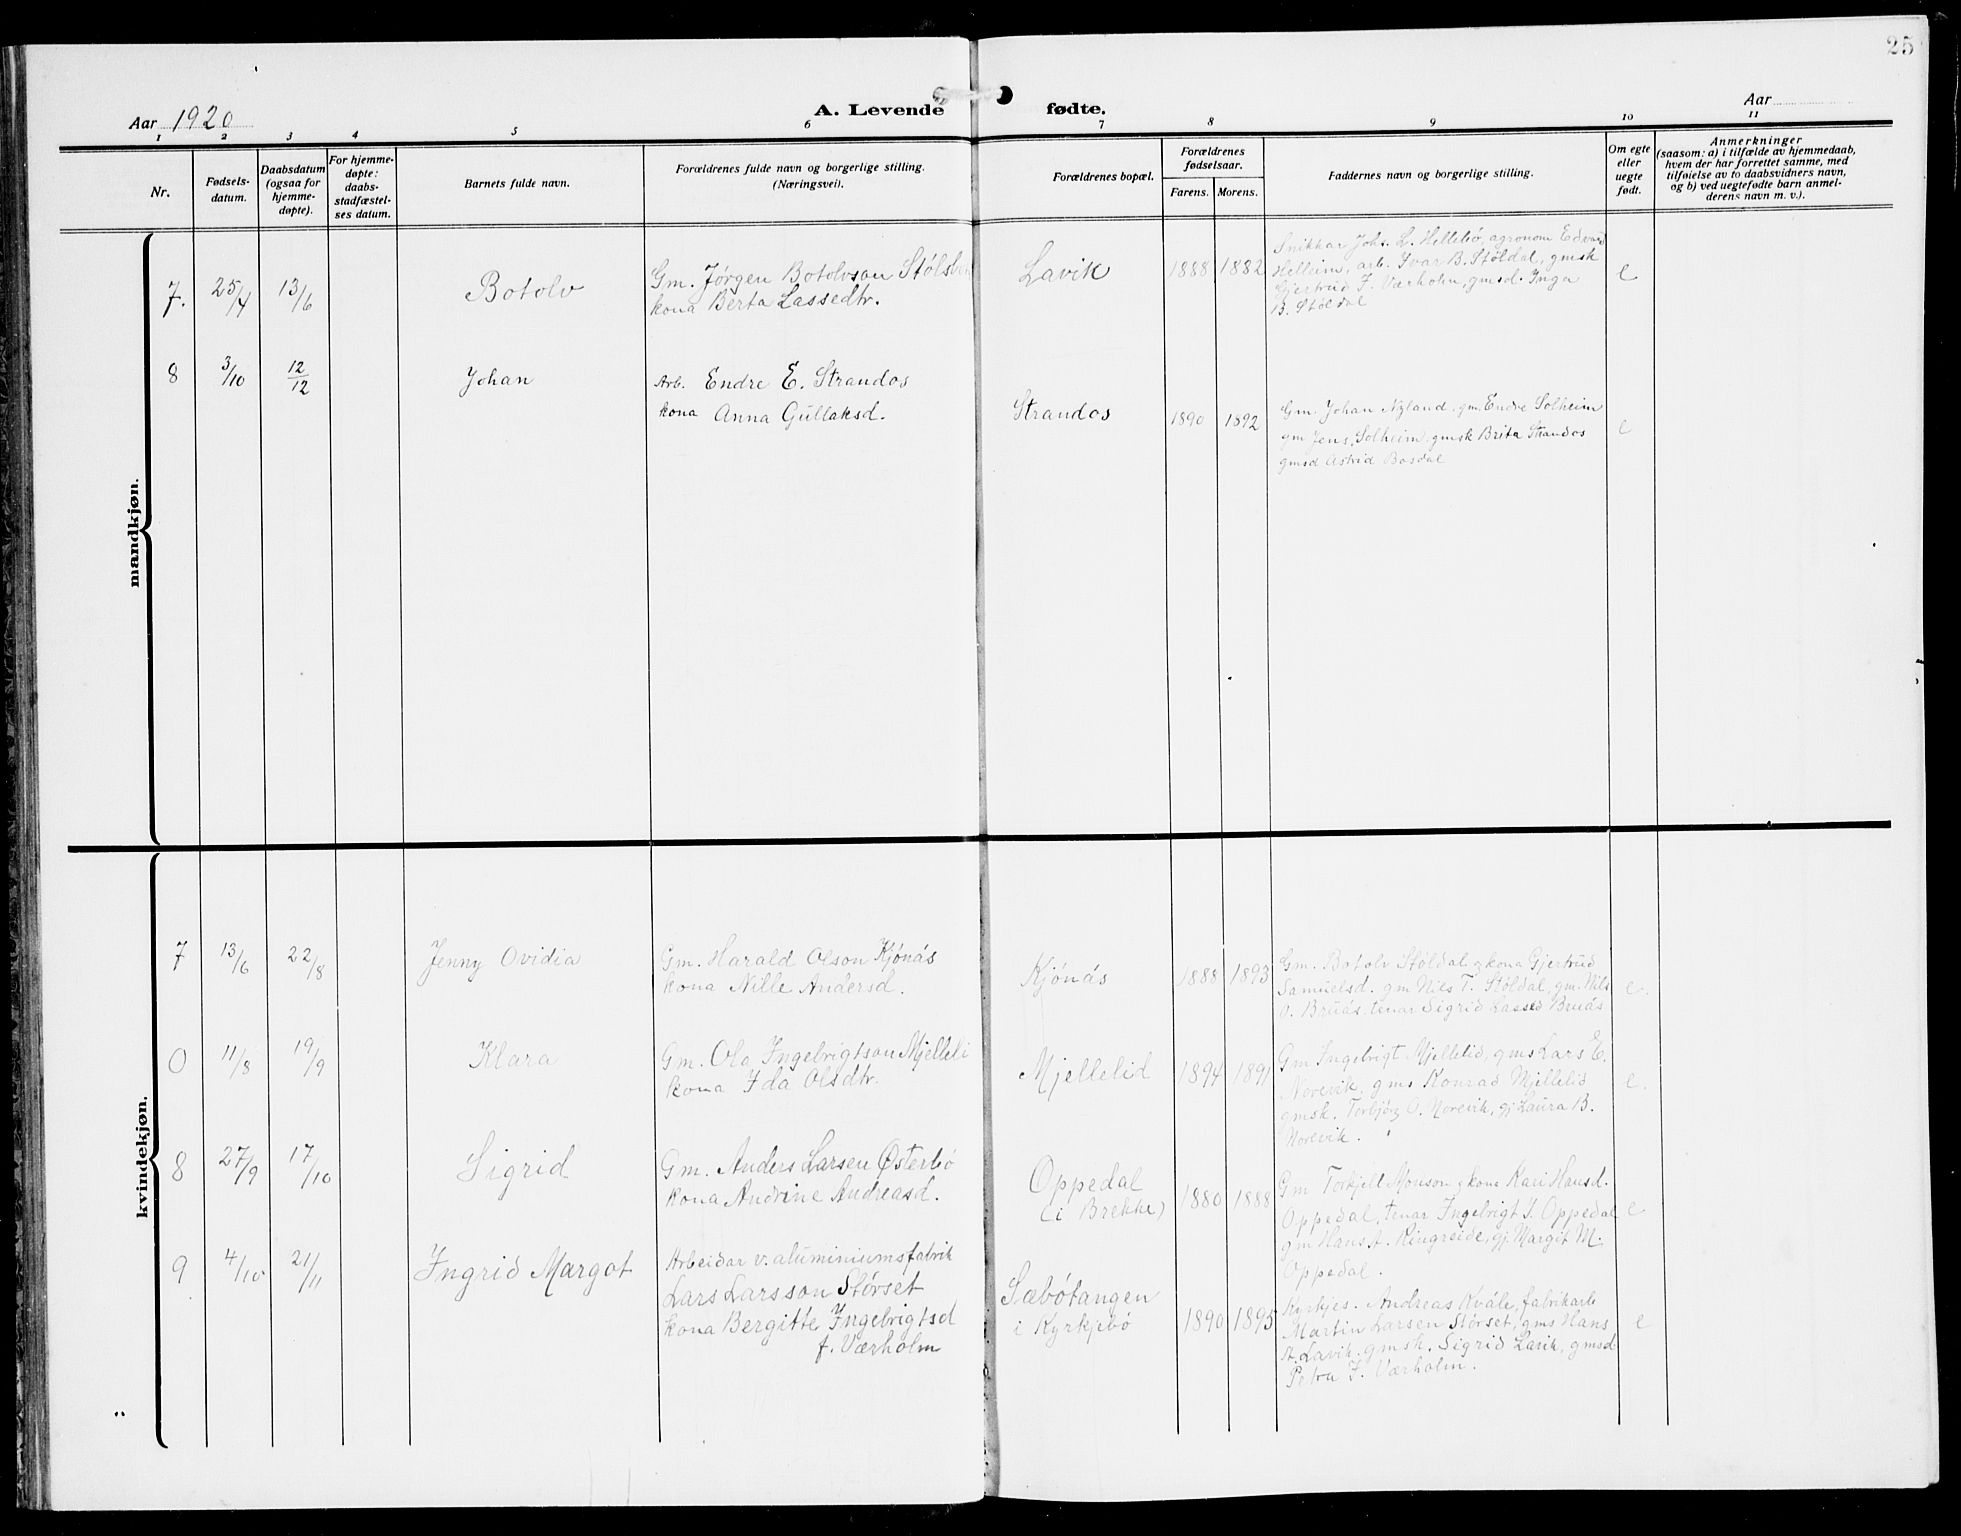 25
Aar 1920
A. Levende fødte.
Aar
1 2 3 4 5 6 7 8 9 10 11
Nr.
Fødsels-
datum.
Daabsdatum
(ogsaa for
hjemme-
døpte).
For hjemme-
døpte:
daabs-
stadfæstel-
ses datum.
Barnets fulde navn.
Forældrenes fulde navn og borgerlige stilling.
(Næringsvei).
Forældrenes bopæl.
Forældrenes
fødselsaar.
Farens. Morens.
Faddernes navn og borgerlige stilling.
Om egte
eller
uegte
født.
Anmerkninger
(saasom: a) i tilfælde av hjemmedaab,
hvem der har forrettet samme, med
tilføielse av to daabsvidners navn,
og b) ved uegtefødte barn anmel-
derens navn m. v.).
mandkjøn.
7. 25/4 13/6 Botolv
Gm. Jørgen Botolvson
kona Berta Lassedtr.
Lavik 1888 1882
Snikkar Johs. L. Hellebø, agronom Edvard
Helleim, arb. Ivar B. Støldal, gmsk
Gjertrud I. Værholm, gmsd. Inga
B. Støldal
e
8 3/10 12/12 Johan
Arb. Endre E. Strandos
kona Anna Gullaksd.
Strandos 1890 1892
Gm. Johan Nyland. gm. Endre Solheim
gm Jens Solheim. gmsk Brita Strandos
gmsd Astrid Bosdal
e
kvindekjøn.
7 13/6 22/8 Jenny Ovidia
Gm. Harald Olson Kjónás
kona Nille Andersd.
Kjónás 1888 1893
Gm. Botolv Støldal, kona Gjertrud
Samuelsd. gm Nies T. Støldal, gm. Nils
O. Bruás. tenar Sigrid Lassed Bruás
e.
0 11/8 19/9 Klara
Gm. Ola Ingebrigtson Mjelleli
kona Ida Olsdtr.
Mjellelid 1894 1891
Gm Ingebrigt Mjellelid, gms Lars E.
Norevik, gms Konrad Mjellelid
gmsk. Torbjørg O. Norevik, gj Laura B.
Norevik.
e.
8 27/9 17/10 Sigrid
Gm. Anders Larsen Østerbó
kona Andrine Andreasd.
Oppedal
(i Brekke)
1880 1888
Gm Torkjell Monson, kona Kari Hansd.
Oppedal, tenar Ingebrigt I. Oppedal
gm Hans A. Ringreide, gj. Margit M.
Oppedal.
e
9 4/10 21/11 Ingrid Margot
Arbeidar v. aluminiumsfabrik
Lars Larsson Størset
kona Bergitte Ingebrigtsd
f. Værholm
Sæbótangen
i Kyrkjebó
1890 1895
Kyrkjes. Andreas Kvále, fabrikarb
Martin Larsen Størset, gms Hans
A. Lavik, gmsk. Sigrid Lavik, gmsd
Petra I. Værholm.
e